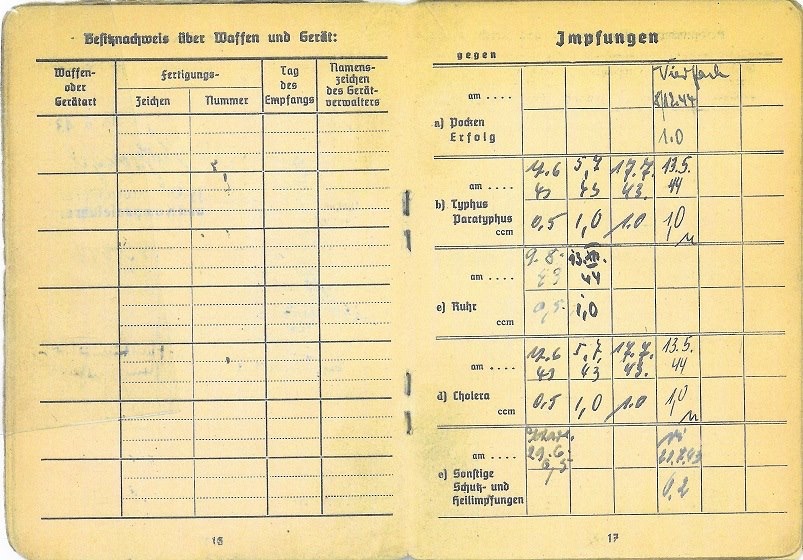 Besitznachweis über Waffen und Gerät:
Waffen-
oder
Gerätart
Fertigungs-
Zeichen
Nummer
Tag
des
Empfangs
Namens-
zeichen
des Gerät-
verwalters
16
Impfungen
gegen
Vierfach
am ....
8/12.44
a) Pocken
Erfolg
1.0
am ....
5,7
43
17.7.
43.
13.5.
44
b) Typhus
Paratyphus
ccm
0,5
1,0
1.0
1,0
am ....
44
c) Ruhr
ccm
0,5
1,0
am ....
5,7,
43
17.7.
43.
13.5.
44
d) Cholera
ccm
0.5
1,0
1.0
1,0
am ....
29.6.
e) Sonstige
Schutz- und
Heilimpfungen
0,2
17